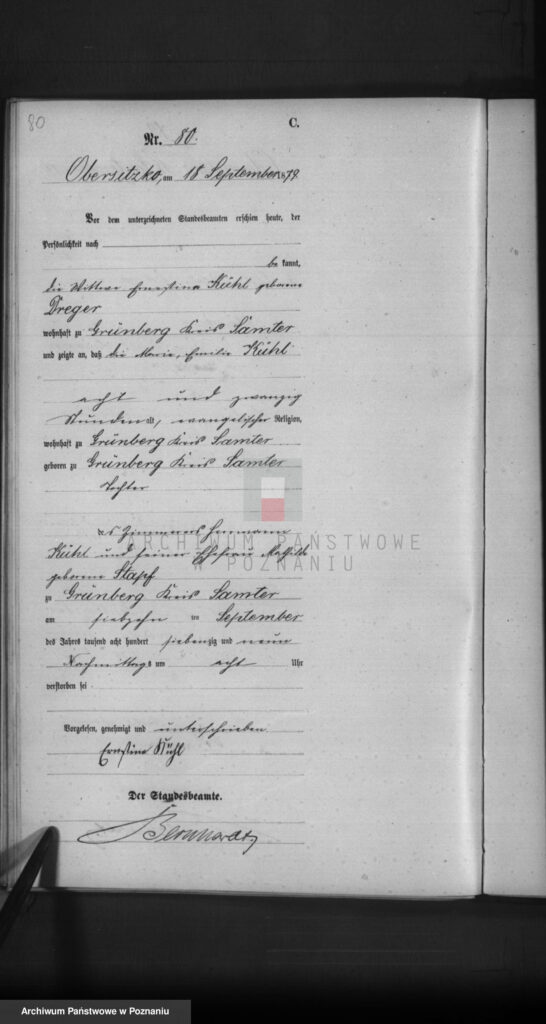 80
C.
Nr. 80.
Obersitzko, am 18 September 1879
Vor dem unterzeichneten Standesbeamten erschien heute, der
Persönlichkeit nach
be kannt,
die Wittwe Ernestine Kühl geborene
Dreger
wohnhaft zu Grünberg Kreis Samter
und zeigte an, daß die Marie, Emilie Kühl
acht und zwanzig
Stunden alt, evangelischer Religion,
wohnhaft zu Grünberg Kreis Samter
geboren zu Grünberg Kreis Samter
Tochter
des Hermann
Kühl und seiner Ehefrau Mathilde
geborene Stapf
zu Grünberg Kreis Samter
am siebzehn ten September
des Jahres tausend acht hundert siebenzig und neun
Nachmittags um acht Uhr
verstorben sei
Vorgelesen, genehmigt und unterschrieben
Ernstine Kühl
Der Standesbeamte.
Bernhardt
ARCHIWUM PAŃSTWOWE
W POZNANIU
Archiwum Państwowe w Poznaniu